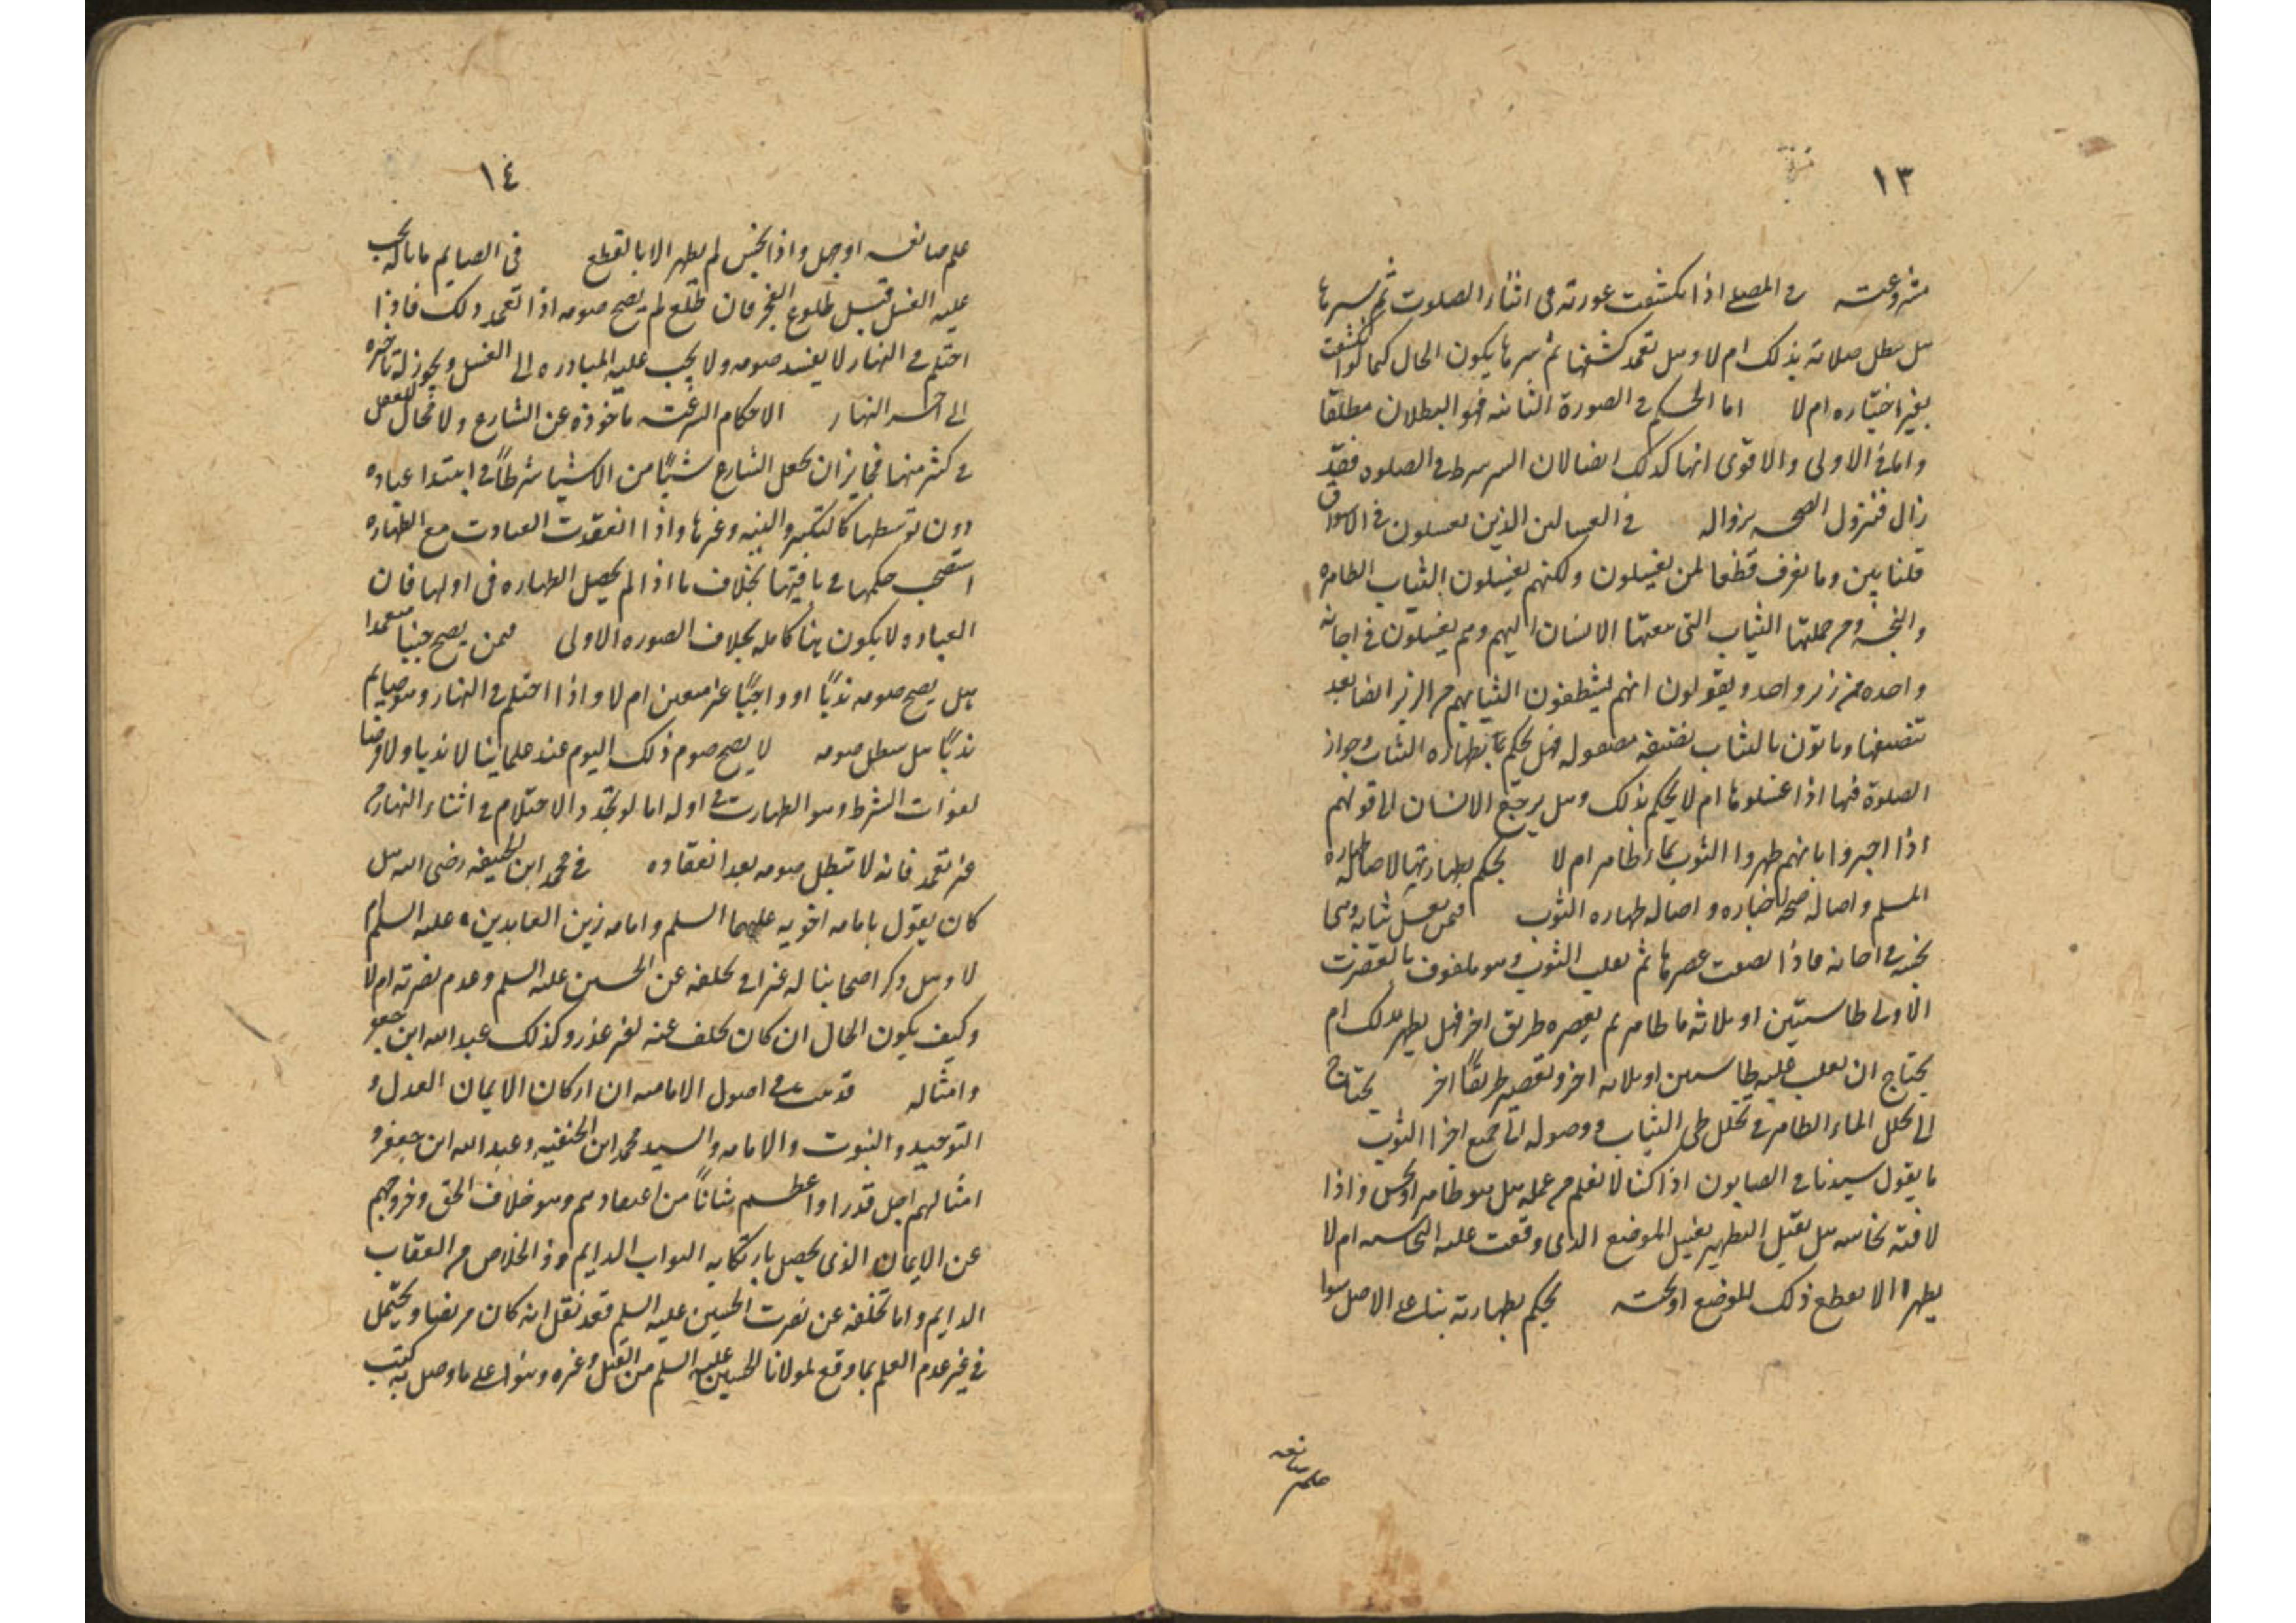 ١٣
مشروعيته في المصلي اذا انكشفت عورته في اثناء الصلوت ثم سترها
هل يبطل صلاته بذلك ام لا وهل تعمد كشفها ثم سترها يكون الحال كما لو انكشفت
بغير اختياره ام لا اما الحكم في الصورة الثانيه فهو البطلان مطلقا
واما في الاولى والاقوى انها كذلك ايضا لان الستر شرط في الصلوه فقد
زال فتزول الصحه بزواله في الغسالين الذين يغسلون في الاسواق
قلنا بين وما نعرف قطعا لمن يغسلون ولكنهم يغسلون الثياب الطاهره
والنجسه ومن جملتها الثياب التي يبعثها الانسان اليهم وهم يغسلون في اجانه
واحده من زير واحد ويقولون انهم ينظفون الثياب من الزير ايضا بعد
تنضيفها وياتون بالثياب نضيفه مصقوله فهل يحكم بطهاره الثياب وجواز
الصلوة فيها اذا غسلوها ام لا يحكم بذلك وهل يرجع الانسان الى قولهم
اذا اخبروا بانهم طهروا الثوب بماء طاهر ام لا يحكم بطهارتها لاصاله طهاره
المسلم واصاله صحه اخباره واصاله طهاره الثوب فيمن يغسل ثيابه وهي
نجسه في اجانه فاذا عصرها ثم يقلب الثوب وهو ملفوف بالعصرت
الاولى طاستين او ثلاثه ما طاهر ثم يعصره طريق اخر فهل يطهر بذلك ام
يحتاج ان يقلب عليه طاستين او ثلاثه اخر ويعصر طريقا اخر يحتاج
الى تخلل الماء الطاهر في تخلل طي الثياب ووصوله الى جميع اجزا الثوب
ما يقول سيدنا في الصابون اذا كنا لا نعلم من عمله هل هو طاهر او نجس واذا
لاقته نجاسه هل يقبل التطهير بغسل الموضع الذي وقعت عليه النجاسه ام لا
يطهر الا بقطع ذلك الموضع او نحته يحكم بطهارته بناء على الاصل سوا
علم صانعه
١٤
علم صانعه او جهل واذا نجس لم يطهر الا بالقطع في الصايم ما باله يجب
عليه الغسل قبل طلوع الفجر فان طلع لم يصح صومه اذا تعمد ذلك فاذا
احتلم في النهار لا يفسد صومه ولا يجب عليه المبادره الى الغسل ويجوز له تاخيره
الى اخر النهار الاحكام الشرعيه ماخوذه عن الشارع ولا مجال للعقل
في كثير منها فجايز ان يجعل الشارع شيئًا من الاشيا شرطًا في ابتدا عباده
دون توسطها كالتكبير والنيه وغيرها واذا انعقدت العبادت مع الطهاره
استصحب حكمها في باقيتها بخلاف ما اذا لم يحصل الطهاره في اولها فان
العباده لا يكون هنا كامله بخلاف الصوره الاولى فيمن يصبح جنبا متعمدا
هل يصح صومه ندبًا او واجبًا غير معين ام لا واذا احتلم في النهار وهو صايم
ندبًا هل يبطل صومه لا يصح صوم ذلك اليوم عند علماينا لا ندبا ولا فرضا
لفوات الشرط وهو الطهارت في اوله اما لو تجدد الاحتلام في اثناء النهار من
غير تعمد فانه لا تبطل صومه بعد انعقاده في محمد ابن الحنيفه رضي الله هل
كان يقول بامامه اخويه عليهما السلم وامامه زين العابدين عليه السلم ام
لا وهل ذكر اصحابنا له عذرا في تخلفه عن الحسين عليه السلم وعدم نصرته ام لا
وكيف يكون الحال ان كان تخلف عنه لغير عذر وكذلك عبد الله ابن جعفر
وامثاله قد ثبت في اصول الاماميه ان اركان الايمان العدل و
التوحيد والنبوت والامامه والسيد محمد ابن الحنفيه وعبد الله ابن جعفر و
امثالهم اجل قدرا واعظم شانًا من اعتقادهم وهو خلاف الحق وخروجهم
عن الايمان الذي يحصل بارتكابه الثواب الدايم وذ الخلاص من العقاب
الدايم واما تخلفه عن نصرت الحسين عليه السلم فقد نقل انه كان مريضا ويحتمل
في غيره عدم العلم بما وقع لمولانا الحسين عليه السلم من القتل وغيره وبنوا على ما وصل به كتب